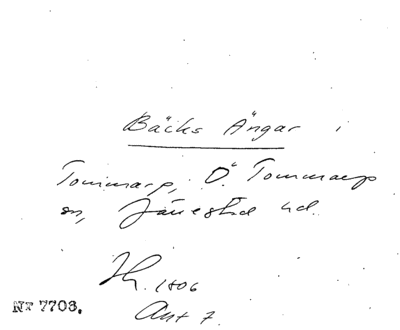 Bäcks Ängar i
Tommarp, Ö. Tommarps
sn, Järrestad hd.
Sk. 1806
Akt 7.
Nr 7703.